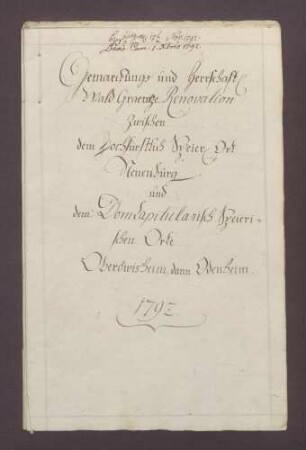 Gemarckungs und Herrschaft
Wald Graentze Renovation
Zwischen
dem Hochfürstlich Speier. Ort
Neuenburg
und
dem Domkapitularisch Speieri-
schen Orte
Oberöwisheim, dann Odenheim.
1792